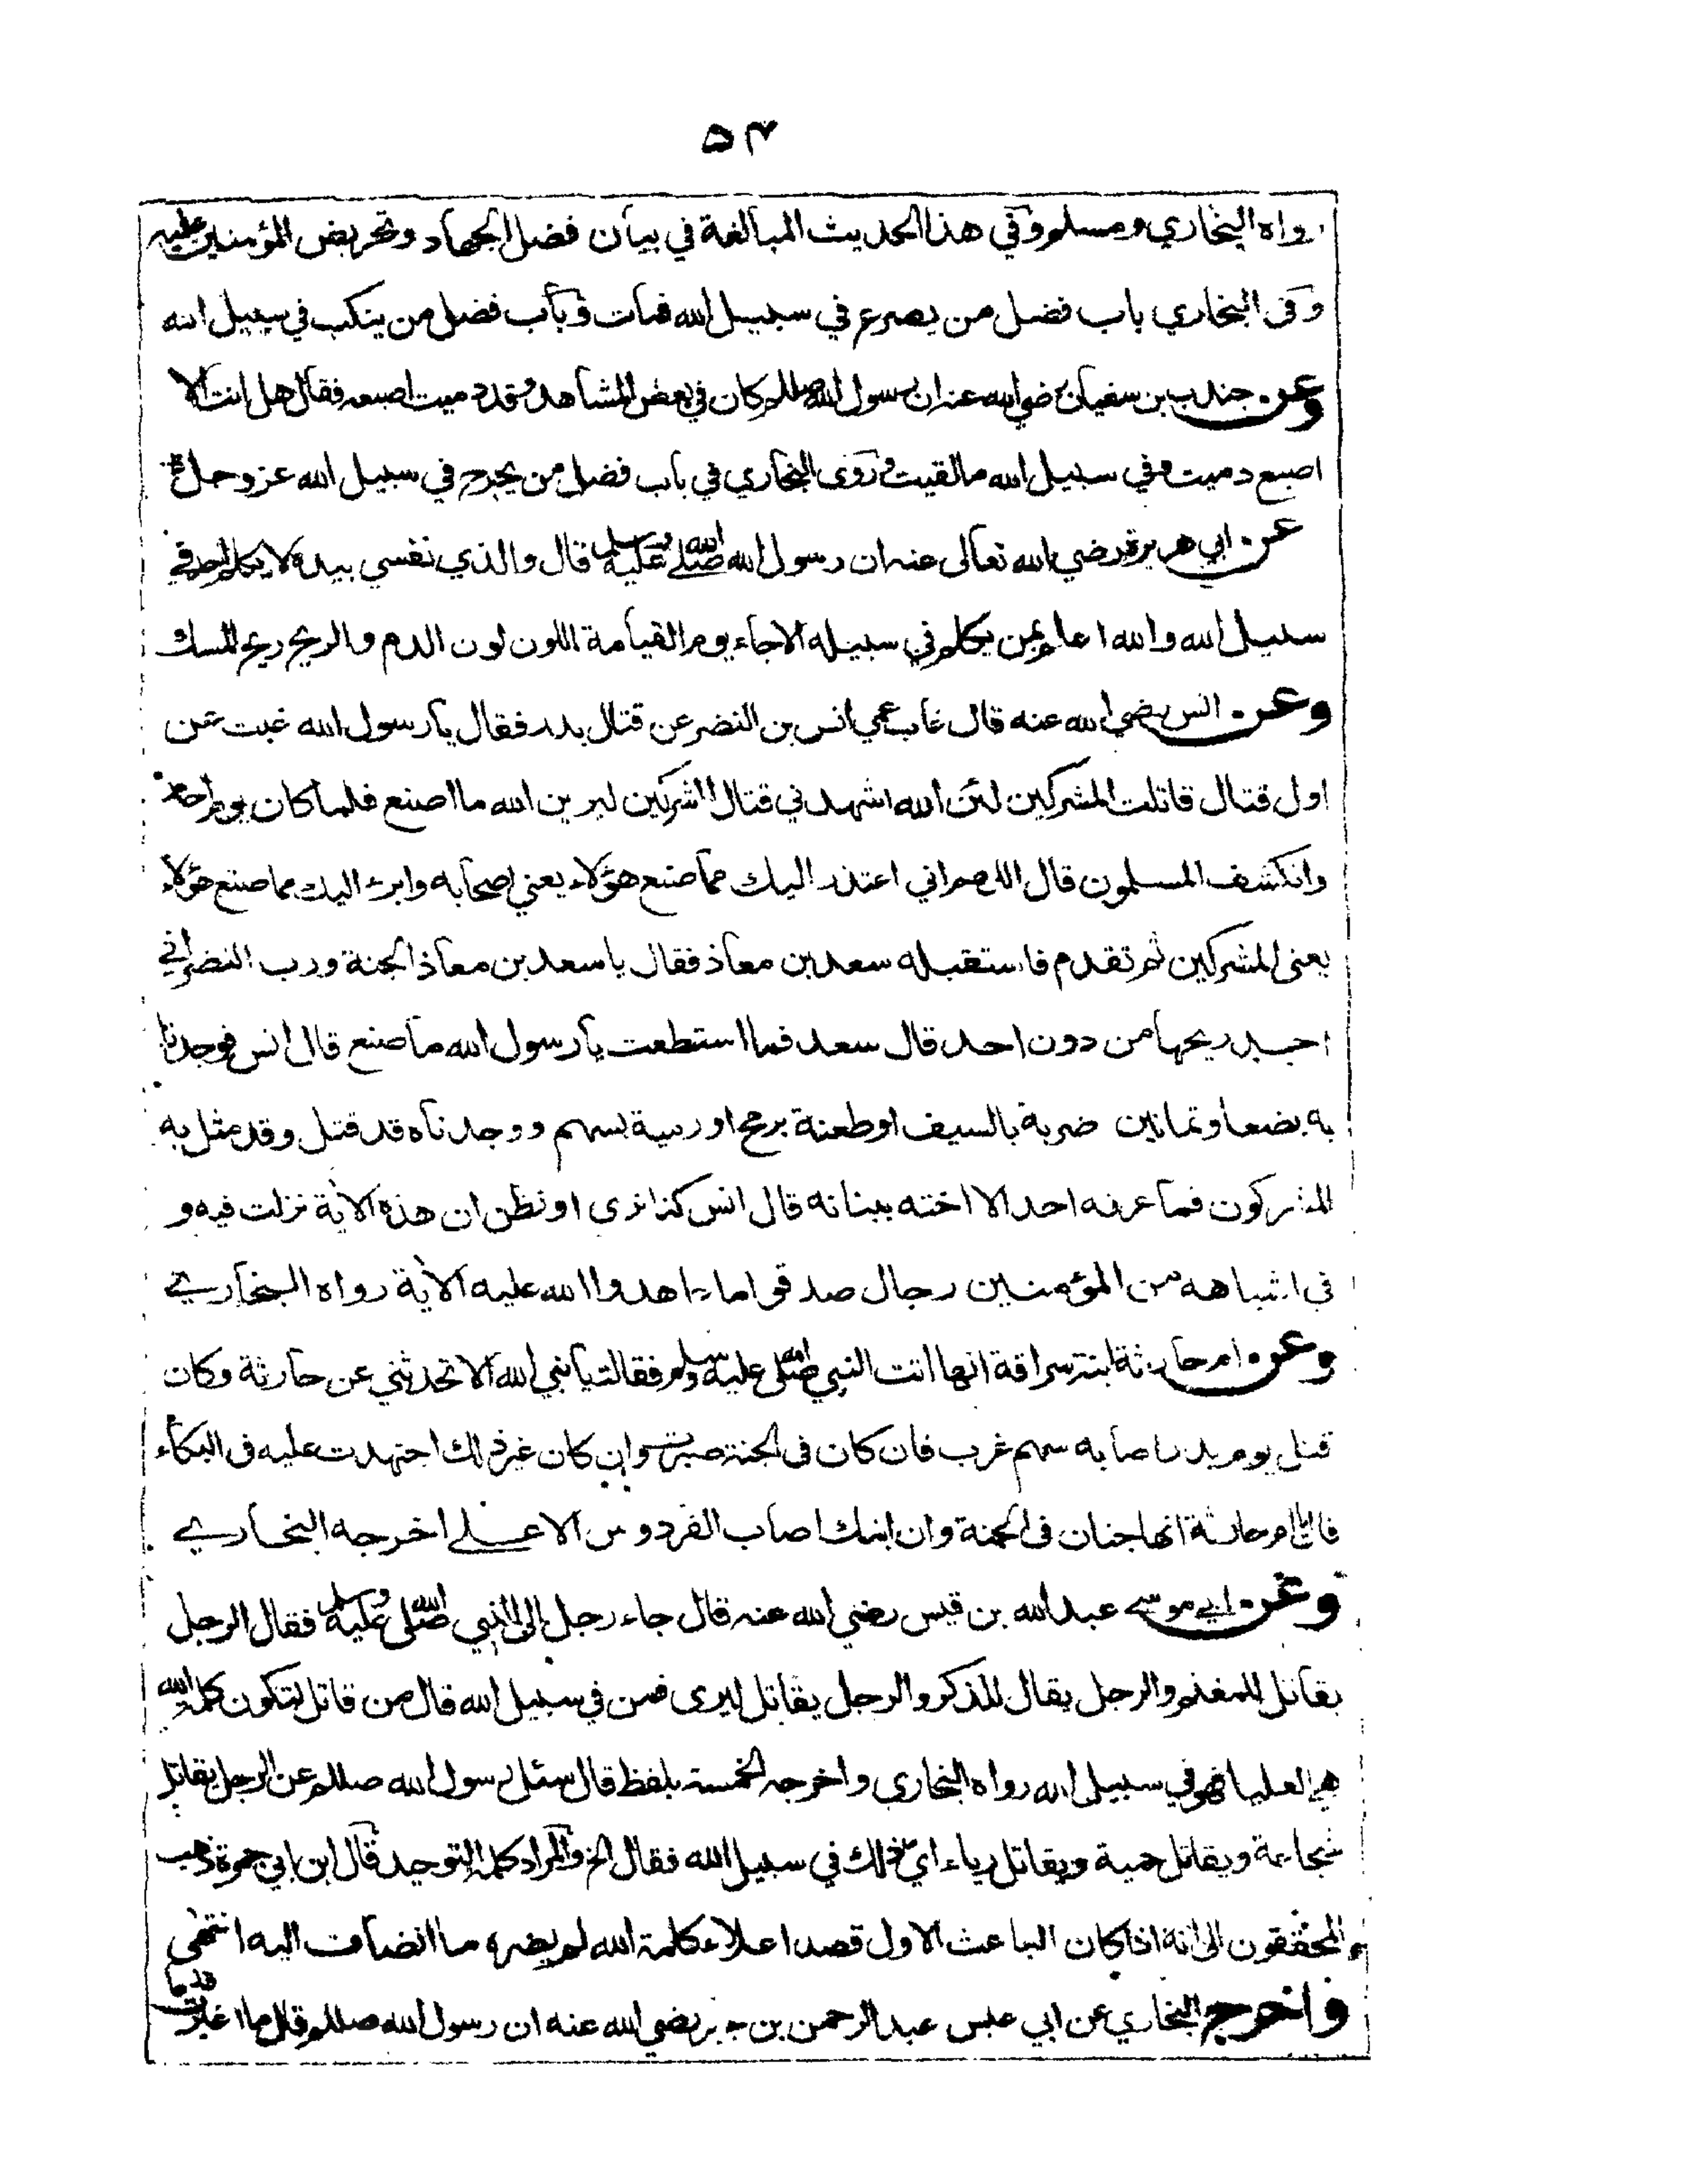 ۵۴
رواه البخاري ومسلم وفي هذا الحديث المبالغة في بيان فضل الجهاد وتحريض المؤمنين عليه
وفى البخاري باب فضل من يصرع في سبيل الله فمات وباب فضل من ينكب في سبيل الله
وعن جندب بن سفيان رضي الله عنه ان رسول الله صللم كان في بعض المشاهد وقد دميت اصبعه فقال هل انت الا
اصبع دميت وفي سبيل الله ما لقيت وروى البخاري في باب فضل من يجرح في سبيل الله عز وجل
عن ابي هريرة رضي الله تعالى عنه ان رسول الله صلى الله عليه وسلم قال والذي نفسي بيده لا يكلم احد في
سبيل الله والله اعلم بمن يكلم في سبيله الا جاء يوم القيامة اللون لون الدم والريح ريح المسك
وعن انس رضي الله عنه قال غاب عمي انس بن النضر عن قتال بدر فقال يا رسول الله غبت عن
اول قتال قاتلت المشركين لئن الله اشهدني قتال المشركين ليرين الله ما اصنع فلما كان يوم احد
وانكشف المسلمون قال اللهم اني اعتذر اليك مما صنع هؤلاء يعني اصحابه وابرء اليك مما صنع هؤلاء
يعنى المشركين ثم تقدم فاستقبله سعد بن معاذ فقال يا سعد بن معاذ الجنة ورب النضر اني
اجد ريحها من دون احد قال سعد فما استطعت يا رسول الله ما صنع قال انس فوجدنا
به بضعا وثمانين ضربة بالسيف او طعنة برمح او رمية بسهم ووجدناه قد قتل وقد مثل به
المشركون فما عرفه احد الا اخته ببنانه قال انس كنا نرى او نظن ان هذه الاية نزلت فيه و
فى اشباهه من المؤمنين رجال صدقوا ما عاهدوا الله عليه الاية رواه البخاري
وعن ام حارثة ابنة سراقة انها اتت النبي صلى الله عليه وسلم فقالت يا نبي الله الا تحدثني عن حارثة وكان
قتل يوم بدر اصابه سهم غرب فان كان فى الجنة صبرت وان كان غير ذلك اجتهدت عليه فى البكاء
قال يا ام حارثة انها جنان فى الجنة وان ابنك اصاب الفردوس الاعلى اخرجه البخاري
وعن ابي موسى عبد الله بن قيس رضي الله عنه قال جاء رجل الى النبي صلى الله عليه وسلم فقال الرجل
يقاتل للمغنم والرجل يقال للذكر والرجل يقاتل ليرى فمن في سبيل الله قال من قاتل لتكون كلمة الله
هي العليا فهو في سبيل الله رواه البخاري واخرجه الخمسة بلفظ قال سئل رسول الله صللم عن الرجل يقاتل
شجاعة ويقاتل حمية ويقاتل رياء اي ذلك في سبيل الله فقال الخ والمراد كلمة التوحيد قال ابن ابي جمرة ذهب
المحققون الى انه اذا كان الباعث الاول قصد اعلاء كلمة الله لم يضره ما انضاف اليه انتهى
واخرج البخاري عن ابي عبس عبد الرحمن بن جبر رضي الله عنه ان رسول الله صللم قال ما اغبرت قدما